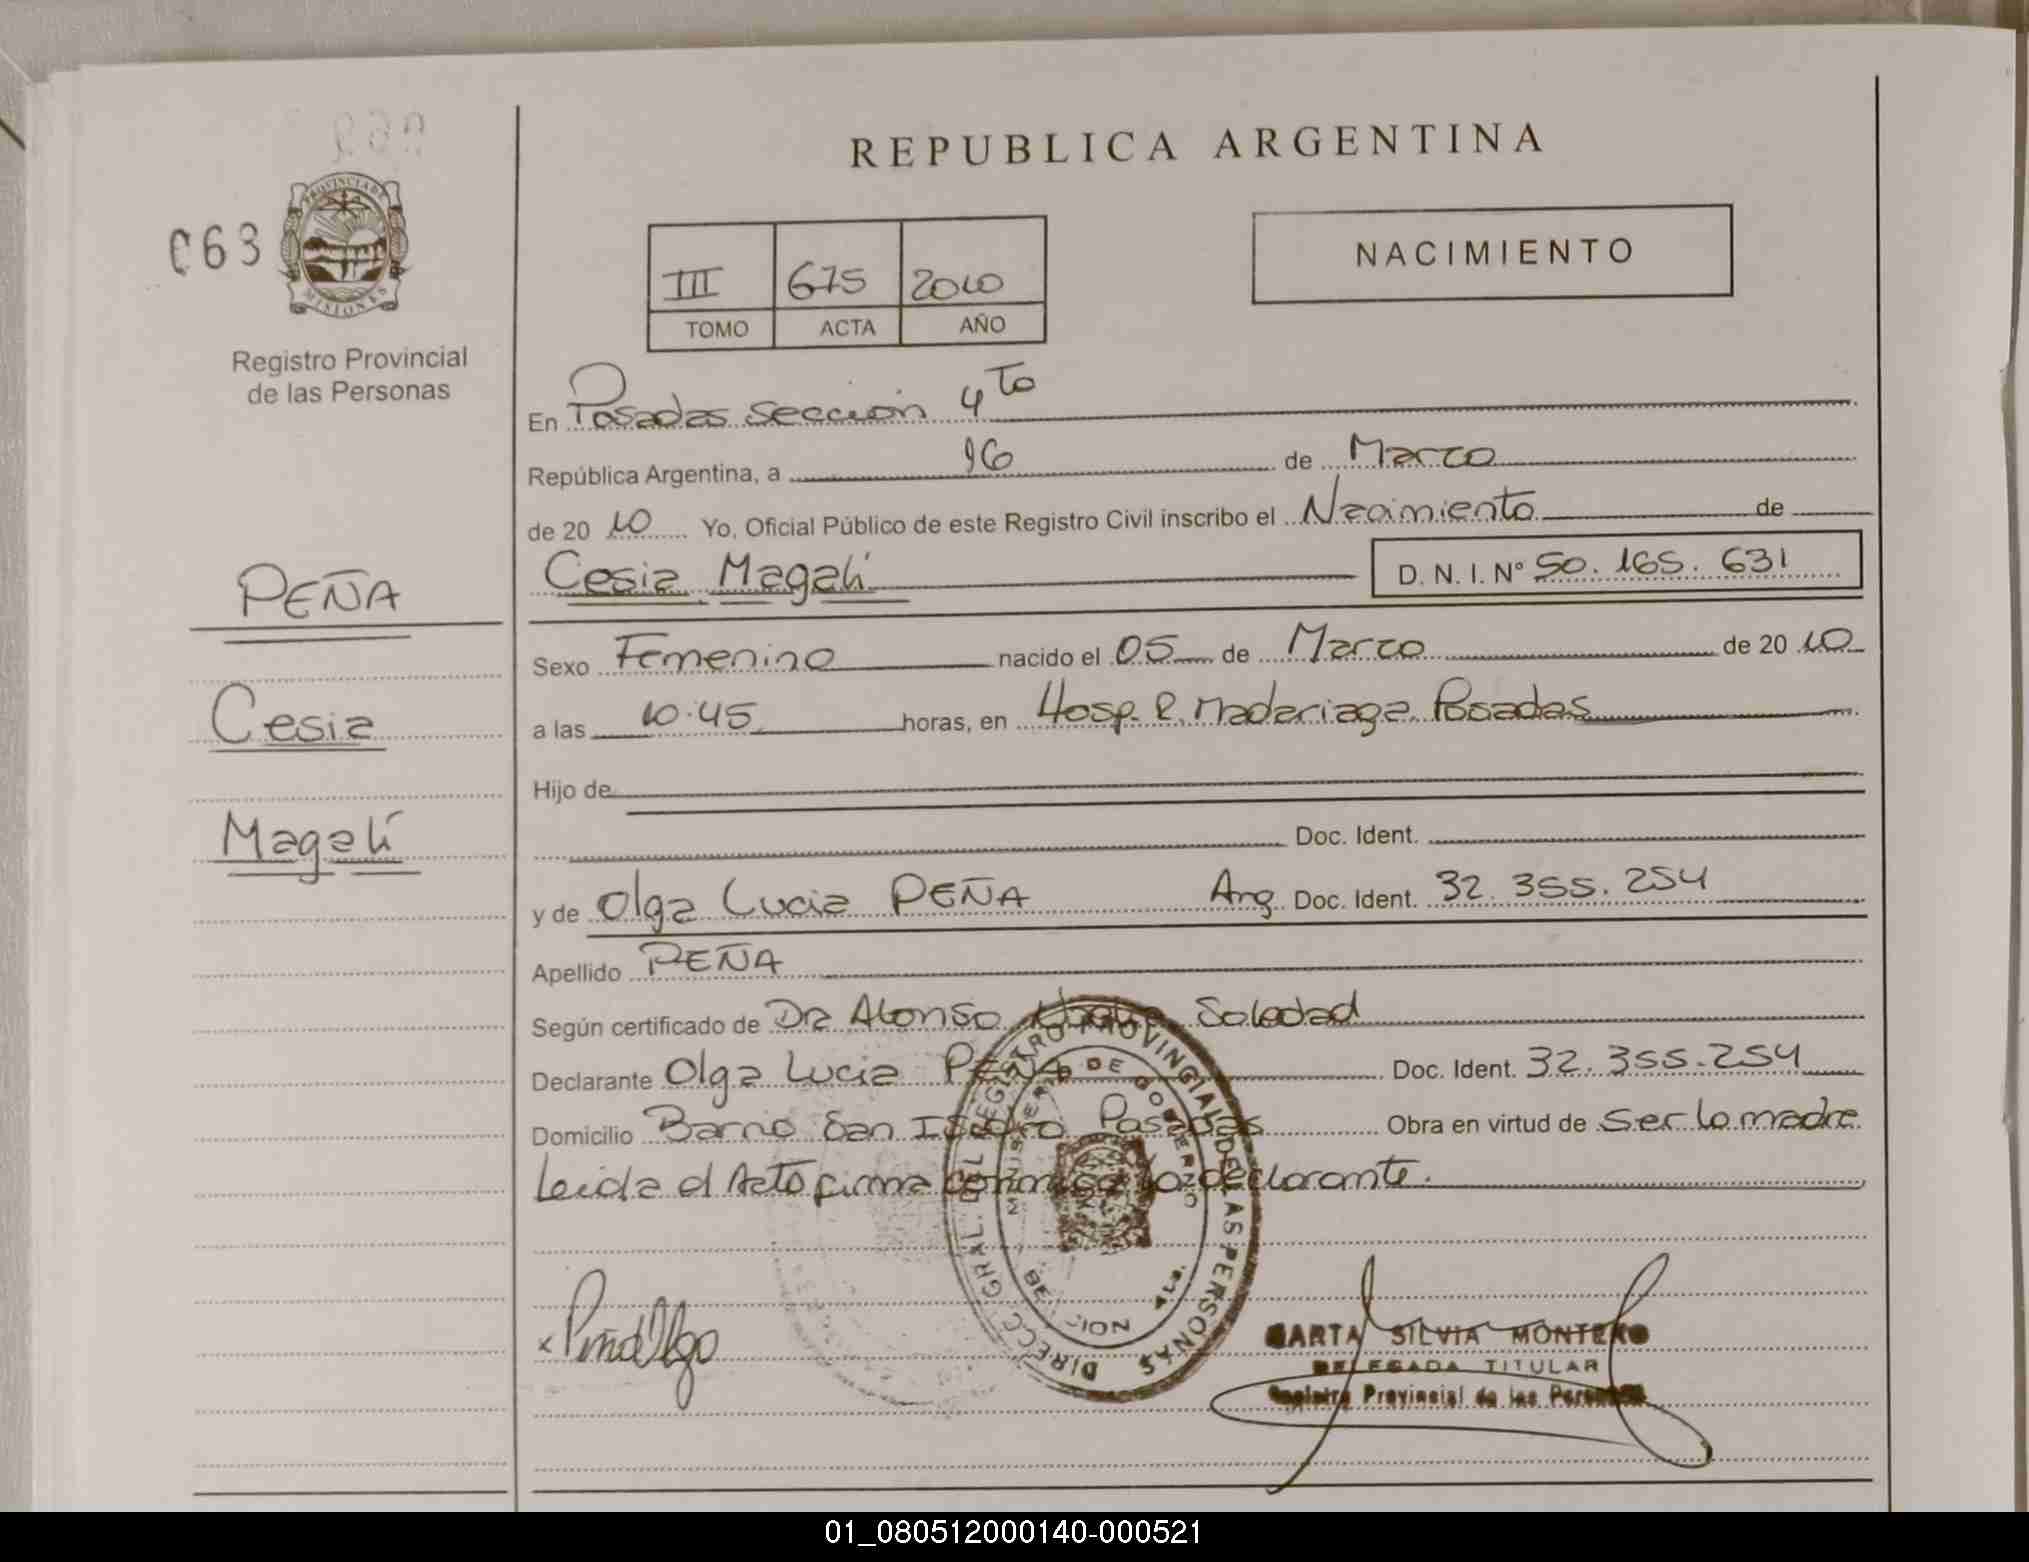 063
PROVINCIA DE
MISIONES
Registro Provincial
de las Personas
REPUBLICA ARGENTINA
III 675 2010
TOMO ACTA AÑO
NACIMIENTO
En Posadas Sección 4to
República Argentina, a 16 de Marzo
de 2010 Yo, Oficial Público de este Registro Civil inscribo el Nacimiento de
Cesia Magalí D. N. I. Nº 50.165.631
PEÑA
Cesia
Magalí
Sexo Femenino nacido el 05 de Marzo de 2010
a las 10.45 horas, en Hosp. R. Madariaga. Posadas
Hijo de
Doc. Ident.
y de Olga Lucia PEÑA Arg. Doc. Ident. 32.355.254
Apellido PEÑA
Según certificado de Dra Alonso Soledad
Declarante Olga Lucia PEÑA Doc. Ident. 32.355.254
Domicilio Barrio San Isidro Posadas Obra en virtud de ser la madre
Leida el Acta firma conmigo la declarante.
DIRECC. GRAL. DEL REGISTRO PROVINCIAL DE LAS PERSONAS
MINISTERIO DE GOBIERNO
x Peña Olga
SILVIA MONTERO
DELEGADA TITULAR
Registro Provincial de las Personas
01_080512000140-000521